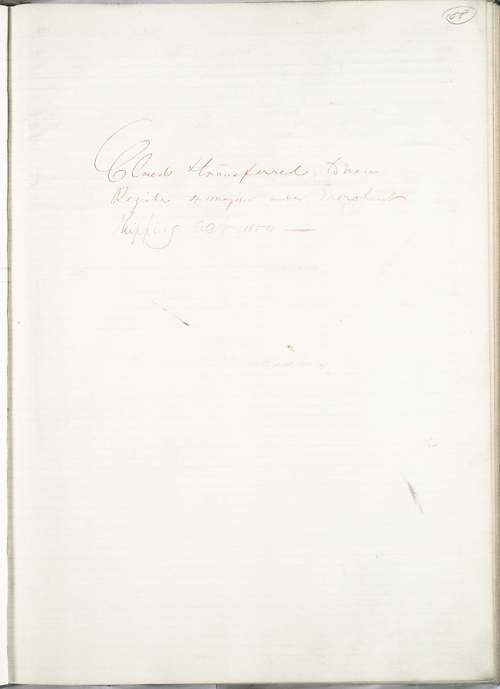 58
Closed & transferred to new
Register & may be under Merchant
Shipping Act 1850 —